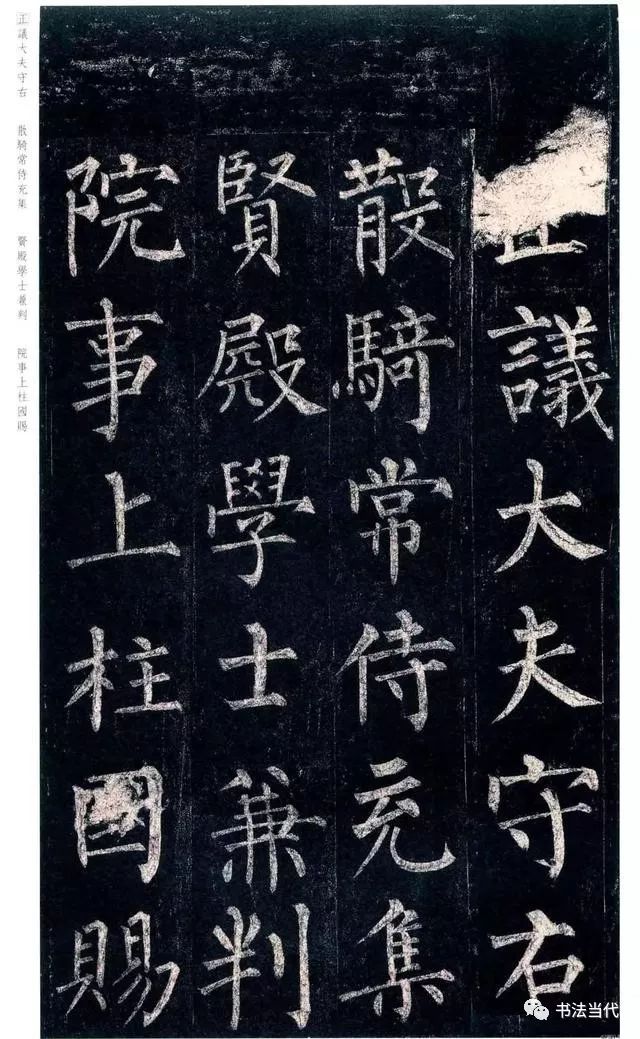 正議大夫守右
散騎常侍充集
賢殿學士兼判
院事上柱國賜
正議大夫守右 散騎常侍充集 賢殿學士兼判 院事上柱國賜
书法当代